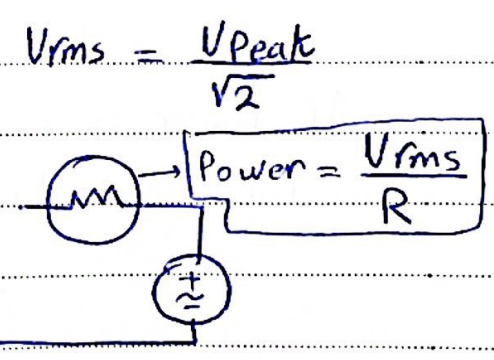 Vrms = VPeak
√2
Power = Vrms
R
+
~